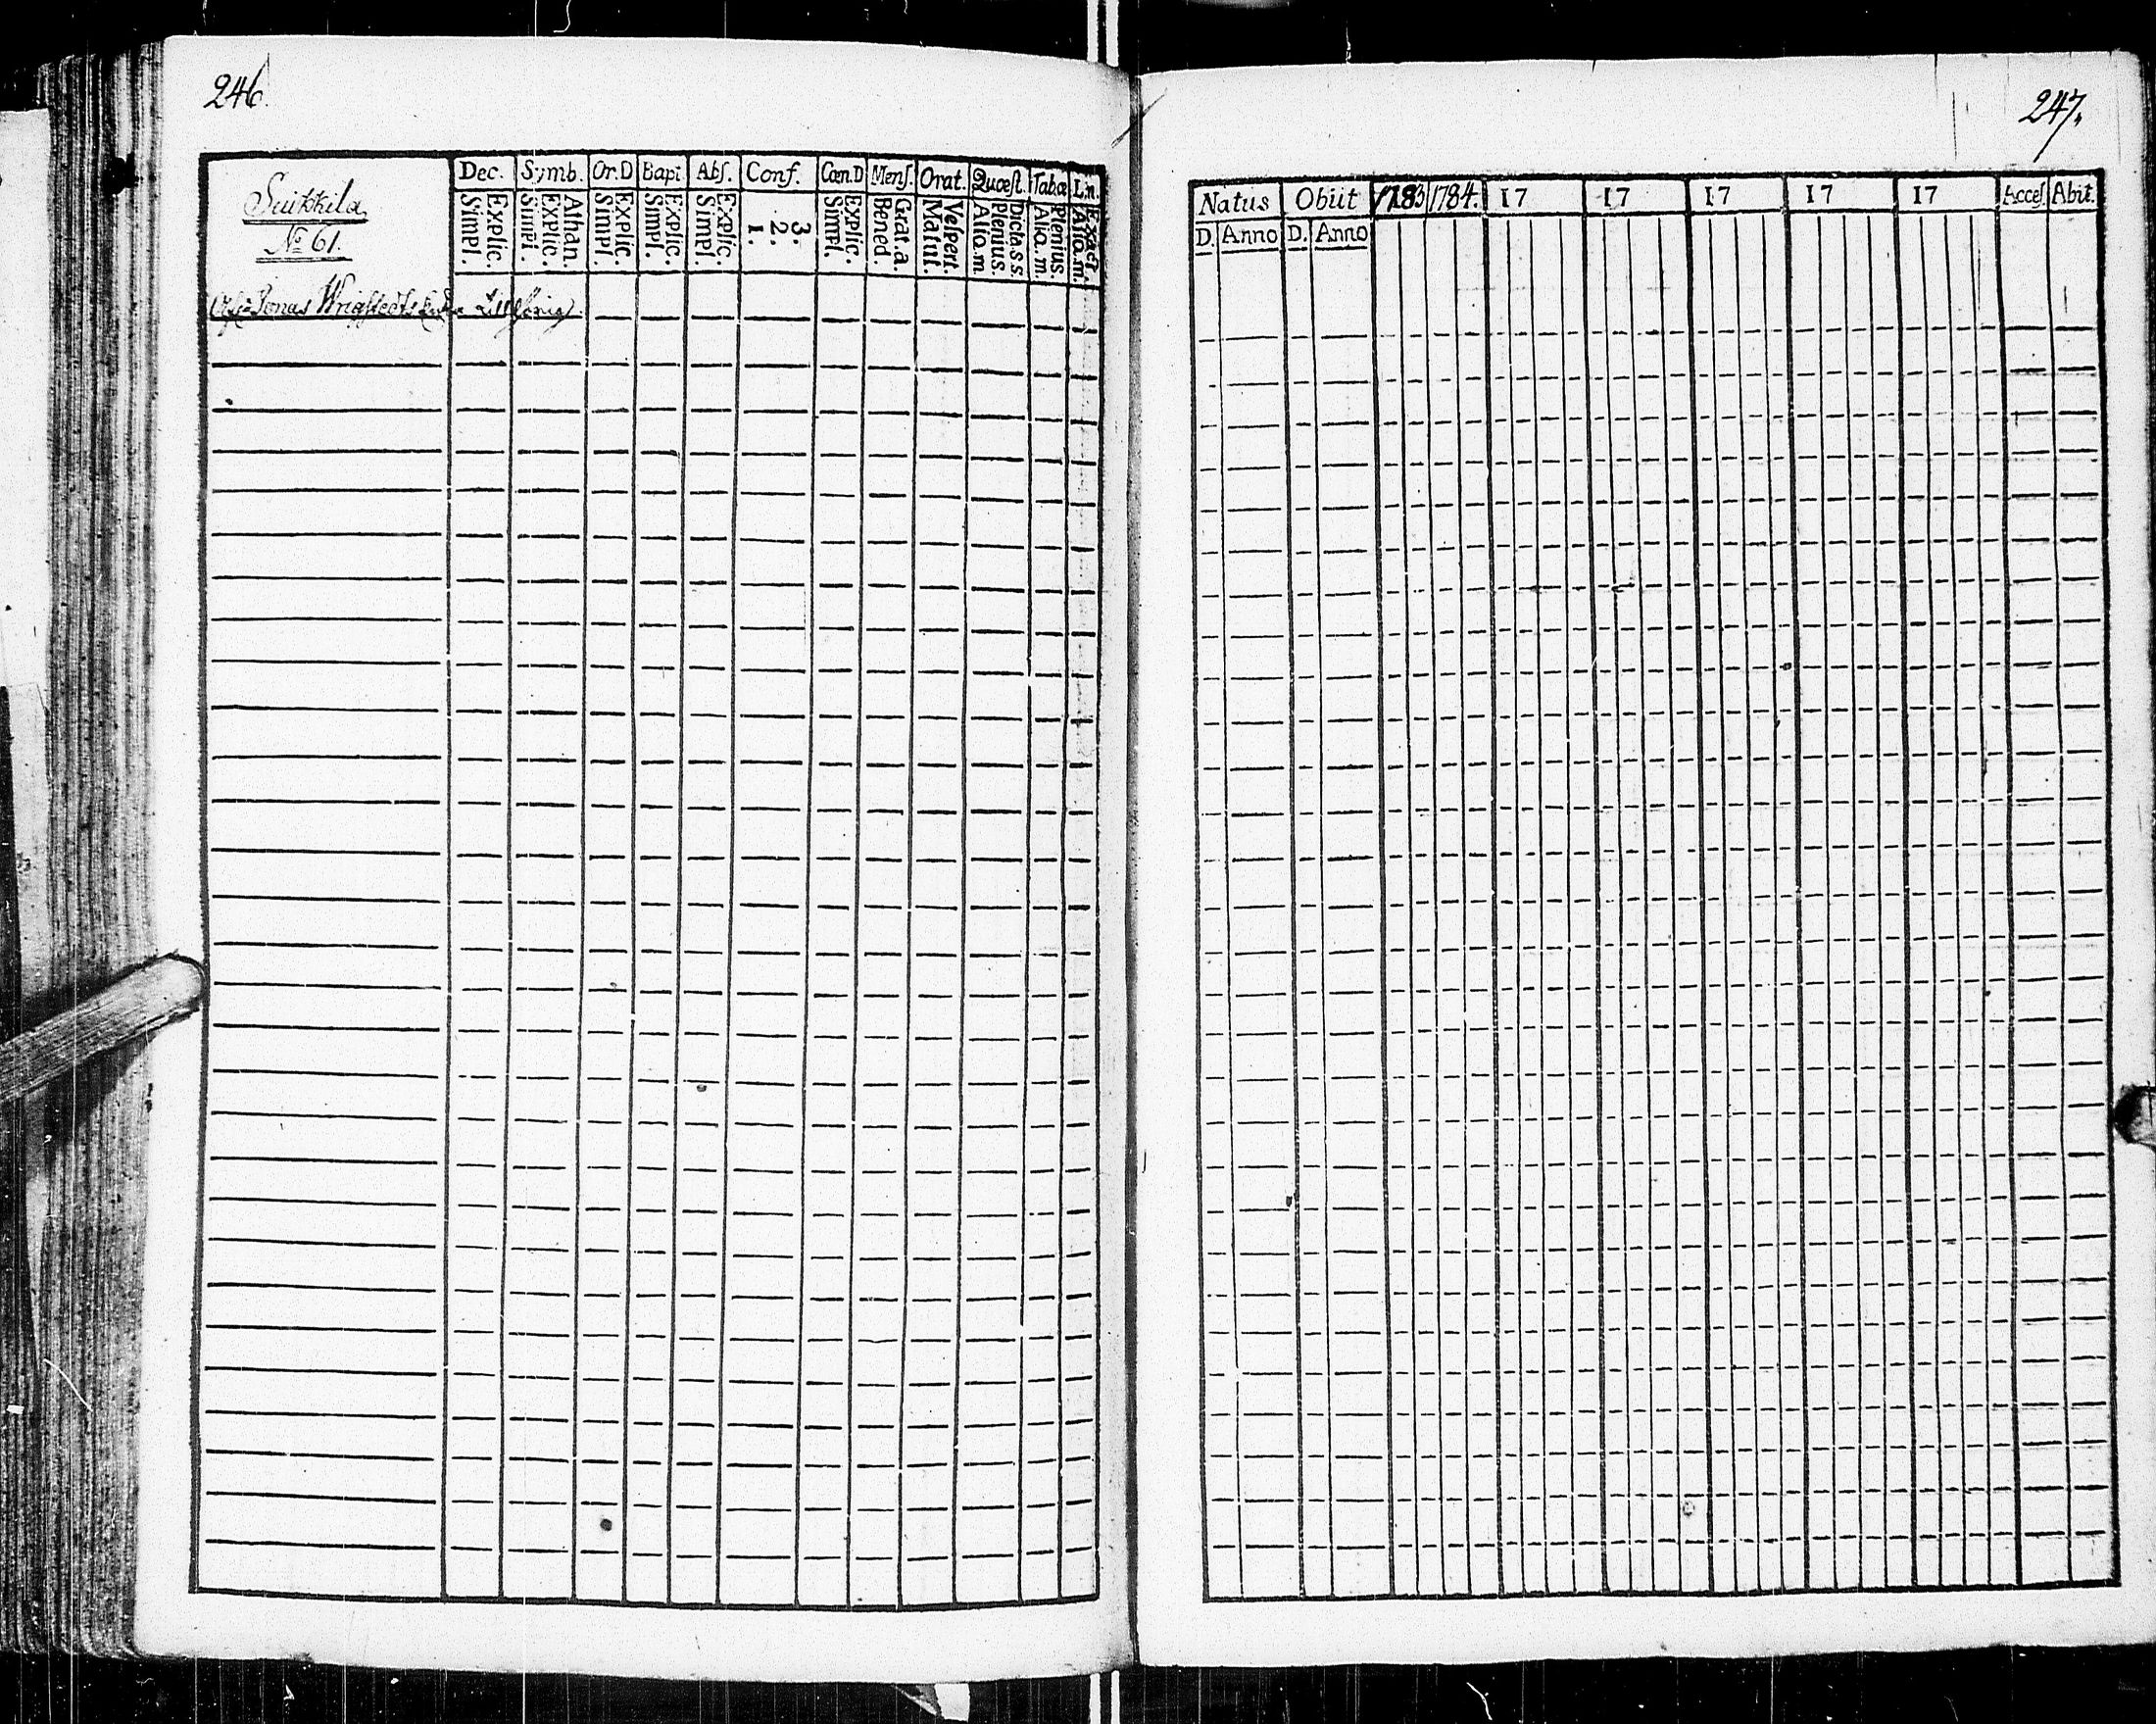 246.
Suikkila
No 61.
Dec. Symb. Or.D Bapt. Abſ. Conf. Cœn.D Menſ. Orat. Quœſt. Tab.œ L.n.
Simpl. Explic. Simpl. Explic. Athan. Simpl. Explic. Simpl. Explic. Simpl. Explic. 1. 2. 3. Simpl. Explic. Bened. Grat.a. Matut. Veſpert. Alio.m Plenius. Dicta.s.s. Alia.m. Plenius. Alio.m. Exact.
Jonas Wrigſtedts
247.
Natus Obiit 1783 1784. 17 17 17 17 17 Acceſ. Abiit.
D. Anno D. Anno